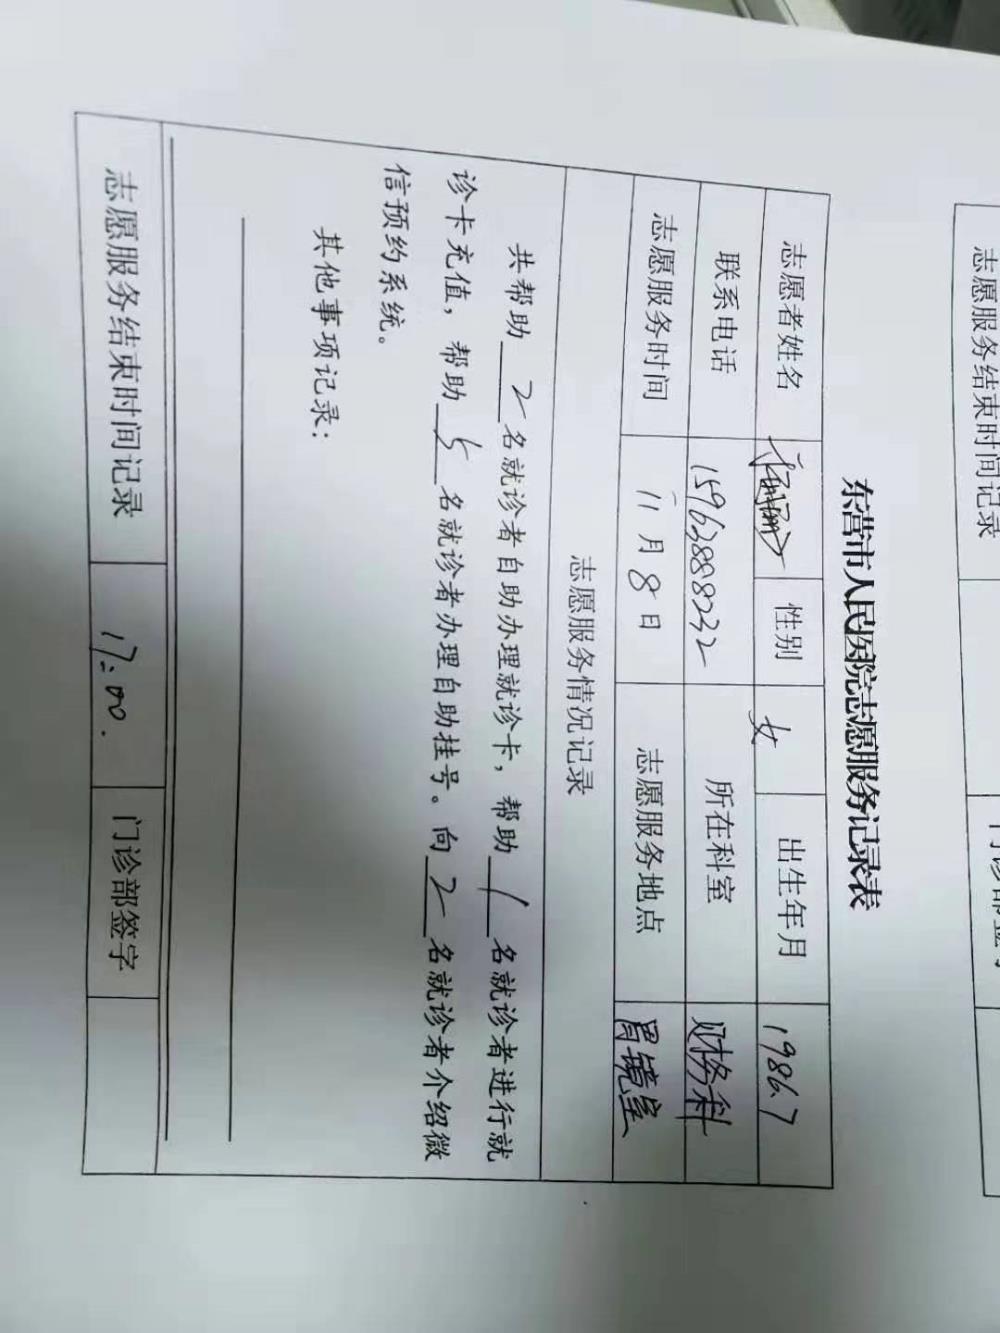 东营市人民医院志愿服务记录表
志愿者姓名 性别 女 出生年月 1986.7
联系电话 15963888232 所在科室 财务科
志愿服务时间 11月8日 志愿服务地点 胃镜室
志愿服务情况记录
共帮助2名就诊者自助办理就诊卡，帮助1名就诊者进行就
诊卡充值，帮助5名就诊者办理自助挂号。向2名就诊者介绍微
信预约系统。
其他事项记录：
志愿服务结束时间记录 17:00. 门诊部签字
志愿服务结束时间记录